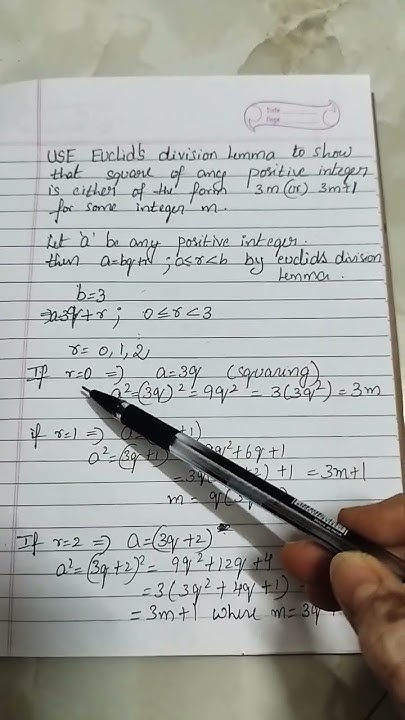 Date
Page
USE Euclid's division lemma to show
that square of any positive integer
is either of the form 3m (or) 3m+1
for some integer m.
Let 'a' be any positive integer.
then a=bq+r ; 0≤r<b by euclid's division
lemma.
b=3
⇒a=3q+r ; 0≤r<3
r= 0,1,2,
If r=0 ⇒ a=3q (squaring)
a²=(3q)²=9q² = 3(3q²) = 3m
if r=1 ⇒ +1)
a²=(3q+1) 9q²+6q+1
+1 = 3m+1
m =
If r=2 ⇒ a=(3q+2)
a²=(3q+2)²= 9q²+12q+4
=3(3q²+4q+1)
= 3m+1 where m=3q